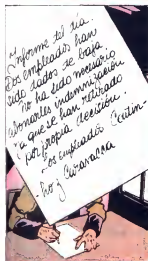 Informe del día.
Dos empleados han
sido dados de baja.
no ha sido necesario
abonarles indemnización
ya que se han retirado
por propia decisión.
Los empleados Caitin-
ho y Caravacca